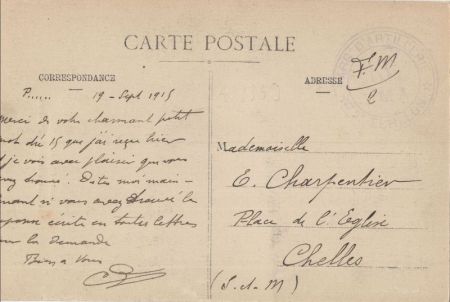 CARTE POSTALE
CORRESPONDANCE
ADRESSE
F. M
P...... 19 - Sept 1915
merci de votre charmant petit
mot du 15 que j'ai reçu hier
je vois avec plaisir que vous
trouvé. Dites moi main-
nant si vous avez trouvé la
réponse écrite en toutes lettres
sur la demande
Bien a vous
Mademoiselle
E. Charpentier
Place de l'Eglise
Chelles
(S-et-M)